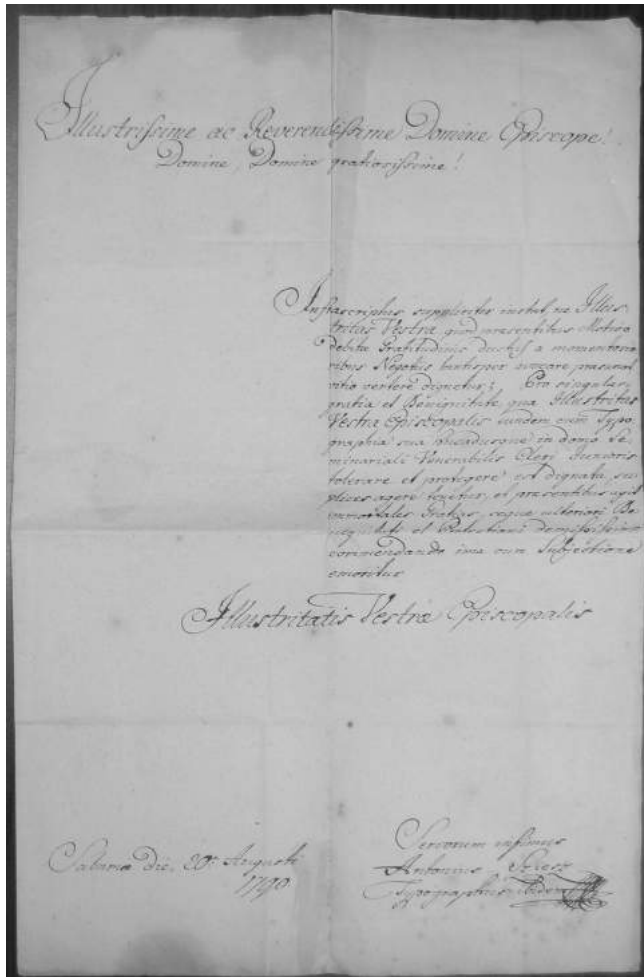 Illustrissime ac Reverendissime Domine Episcope!
Domine, Domine gratiosissime!
Infrascriptus suppliciter instat, ne Illus-
tritas Vestra quod praesentibus Motivo
debitae Gratitudinis ductus a momentosio
ribus Negotiis tantisper avocare praesumat
vitio vertere dignetur; Pro singulari
gratia et Benignitate, qua Illustritas
Vestra Episcopalis eundem cum Typo
graphia sua hucadusque in domo Se
minariali Venerabilis Cleri Junioris
tolerare et protegere est dignata, sup
plices agere tenetur, et praesentibus agit
immortales Gratias, seque ulteriori Be
nignitati et Patrocinio demississime
commendando ima cum Subjectione
emoritur
Illustritatis Vestrae Episcopalis
Sabaria die, 20a Augusti
1790
Servorum infimus
Antonius
Typographus ibidem